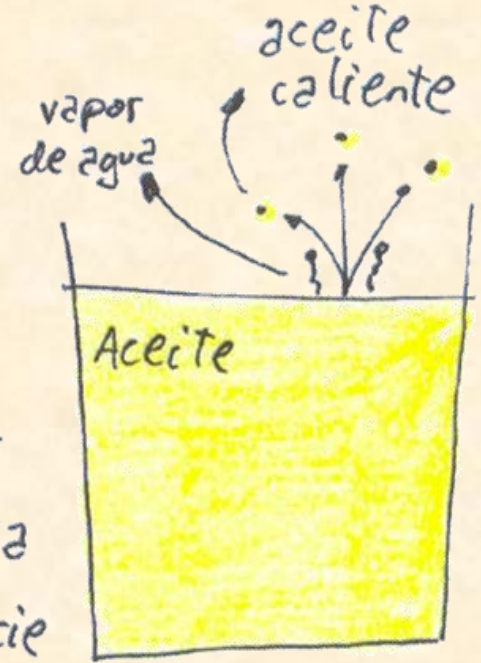 aceite
caliente
vapor
de agua
Aceite
a
cie